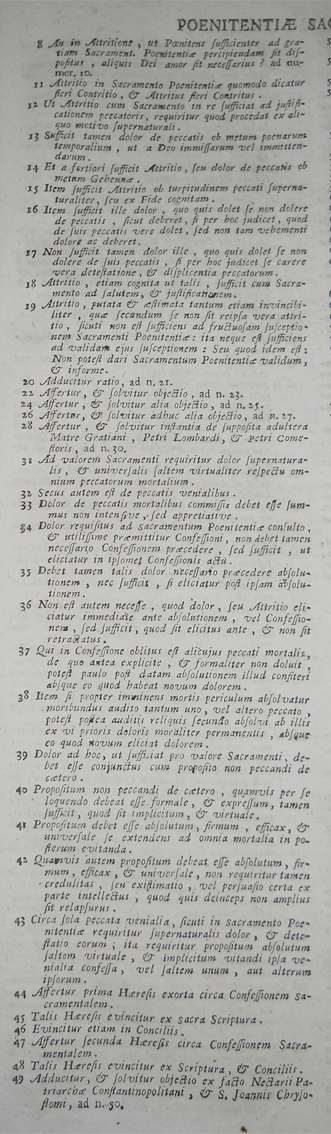 POENITENTIÆ SA
8 An in Attritione, ut Pœnitens sufficienter ad gra-
tiam Sacrament. Poenitentiæ percipiendam sit dis-
positus, aliquis Dei amor sit necessarius? ad nu-
mer. 10.
11 Attritio in Sacramento Poenitentiæ quomodo dicatur
fieri Contritio, & Attritus fieri Contritus.
12 Ut Attritio cum Sacramento in re sufficiat ad justifi-
cationem peccatoris, requiritur quod procedat ex ali-
quo motivo supernaturali.
13 Sufficit tamen dolor de peccatis ob metum poenarum
temporalium, ut a Deo immissarum vel immitten-
darum.
14 Et a fortiori sufficit Attritio, seu dolor de peccatis ob
metum Gehennæ.
15 Item sufficit Attritio ob turpitudinem peccati superna-
turaliter, seu ex Fide cognitam.
16 Item sufficit ille dolor, quo quis dolet se non dolere
de peccatis, sicut deberet, si per hoc judicet, quod
de suis peccatis vere dolet, sed non tam vehementi
dolore ac deberet.
17 Non sufficit tamen dolor ille, quo quis dolet se non
dolere de suis peccatis, si per hoc judicet se carere
vera detestatione, & displicentia peccatorum.
18 Attritio, etiam cognita ut talis, sufficit cum Sacra-
mento ad salutem, & justificationem.
19 Attritio, putata & æstimata tantum etiam invincibi-
liter, quæ secundum se non sit reipsa vera attri-
tio, sicuti non est sufficiens ad fructuosam susceptio-
nem Sacramenti Poenitentiæ: ita neque est sufficiens
ad validam ejus susceptionem: Seu quod idem est:
Non potest dari Sacramentum Poenitentiæ validum,
& informe.
20 Adducitur ratio, ad n. 21.
22 Affertur, & solvitur objectio, ad n. 23.
24 Affertur, & solvitur alia objectio, ad n. 25.
26 Affertur, & solvitur adhuc alia objectio, ad n. 27.
28 Affertur, & solvitur instantia de supposita adultera
Matre Gratiani, Petri Lombardi, & Petri Come-
storis, ad n. 30.
31 Ad valorem Sacramenti requiritur dolor supernatura-
lis, & universalis saltem virtualiter respectu om-
nium peccatorum mortalium.
32 Secus autem est de peccatis venialibus.
33 Dolor de peccatis mortalibus commissis debet esse sum-
mus non intensive, sed appretiative.
34 Dolor requisitus ad sacramentum Poenitentiæ consulto,
& utilissime præmittitur Confessioni, non debet tamen
necessario Confessionem præcedere, sed sufficit, ut
eliciatur in ipsomet Confessionis actu.
35 Debet tamen talis dolor necessario præcedere absolu-
tionem, nec sufficit, si eliciatur post ipsam absolu-
tionem.
36 Non est autem necesse, quod dolor, seu Attritio eli-
ciatur immediate ante absolutionem, vel Confessio-
nem, sed sufficit, quod sit elicitus ante, & non sit
retractatus.
37 Qui in Confessione oblitus est alicujus peccati mortalis,
de quo antea explicite, & formaliter non doluit,
potest post datam absolutionem illud confiteri
absque eo quod habeat novum dolorem.
38 Item si propter imminens mortis periculum absolvatur
moribundus audito tantum uno, vel altero peccato,
potest postea auditis reliquis secundo absolvi ab illis
ex vi prioris doloris moraliter permanentis, absque
eo quod novum eliciat dolorem.
39 Dolor ad hoc, ut sufficiat pro valore Sacramenti, de-
bet esse conjunctus cum proposito non peccandi de
cætero.
40 Propositum non peccandi de cætero, quamvis per se
loquendo debeat esse formale, & expressum, tamen
sufficit, quod sit implicitum, & virtuale.
41 Propositum debet esse absolutum, firmum, efficax, &
universale se extendens ad omnia mortalia in po-
sterum evitanda.
42 Quamvis autem propositum debeat esse absolutum, fir-
mum, efficax, & universale, non requiritur tamen
credulitas, seu existimatio, vel persuasio certa ex
parte intellectus, quod quis deinceps non amplius
sit relapsurus.
43 Circa sola peccata venialia, sicuti in Sacramento Poe-
nitentiæ requiritur supernaturalis dolor, & dete-
statio eorum; ita requiritur propositum absolutum
saltem virtuale, & implicitum vitandi ipsa ve-
nialia confessa, vel saltem unum, aut alterum
ipsorum.
44 Affertur prima Hæresis exorta circa Confessionem Sa-
cramentalem.
45 Talis Hæresis evincitur ex sacra Scriptura.
46 Evincitur etiam in Conciliis.
47 Affertur secunda Hæresis circa Confessionem Sacra-
mentalem.
48 Talis Hæresis evincitur ex Scriptura, & Conciliis.
49 Adducitur, & solvitur objectio ex facto Nectarii Pa-
triarchæ Constantinopolitani, & S. Joannis Chryso-
stomi, ad n. 50.